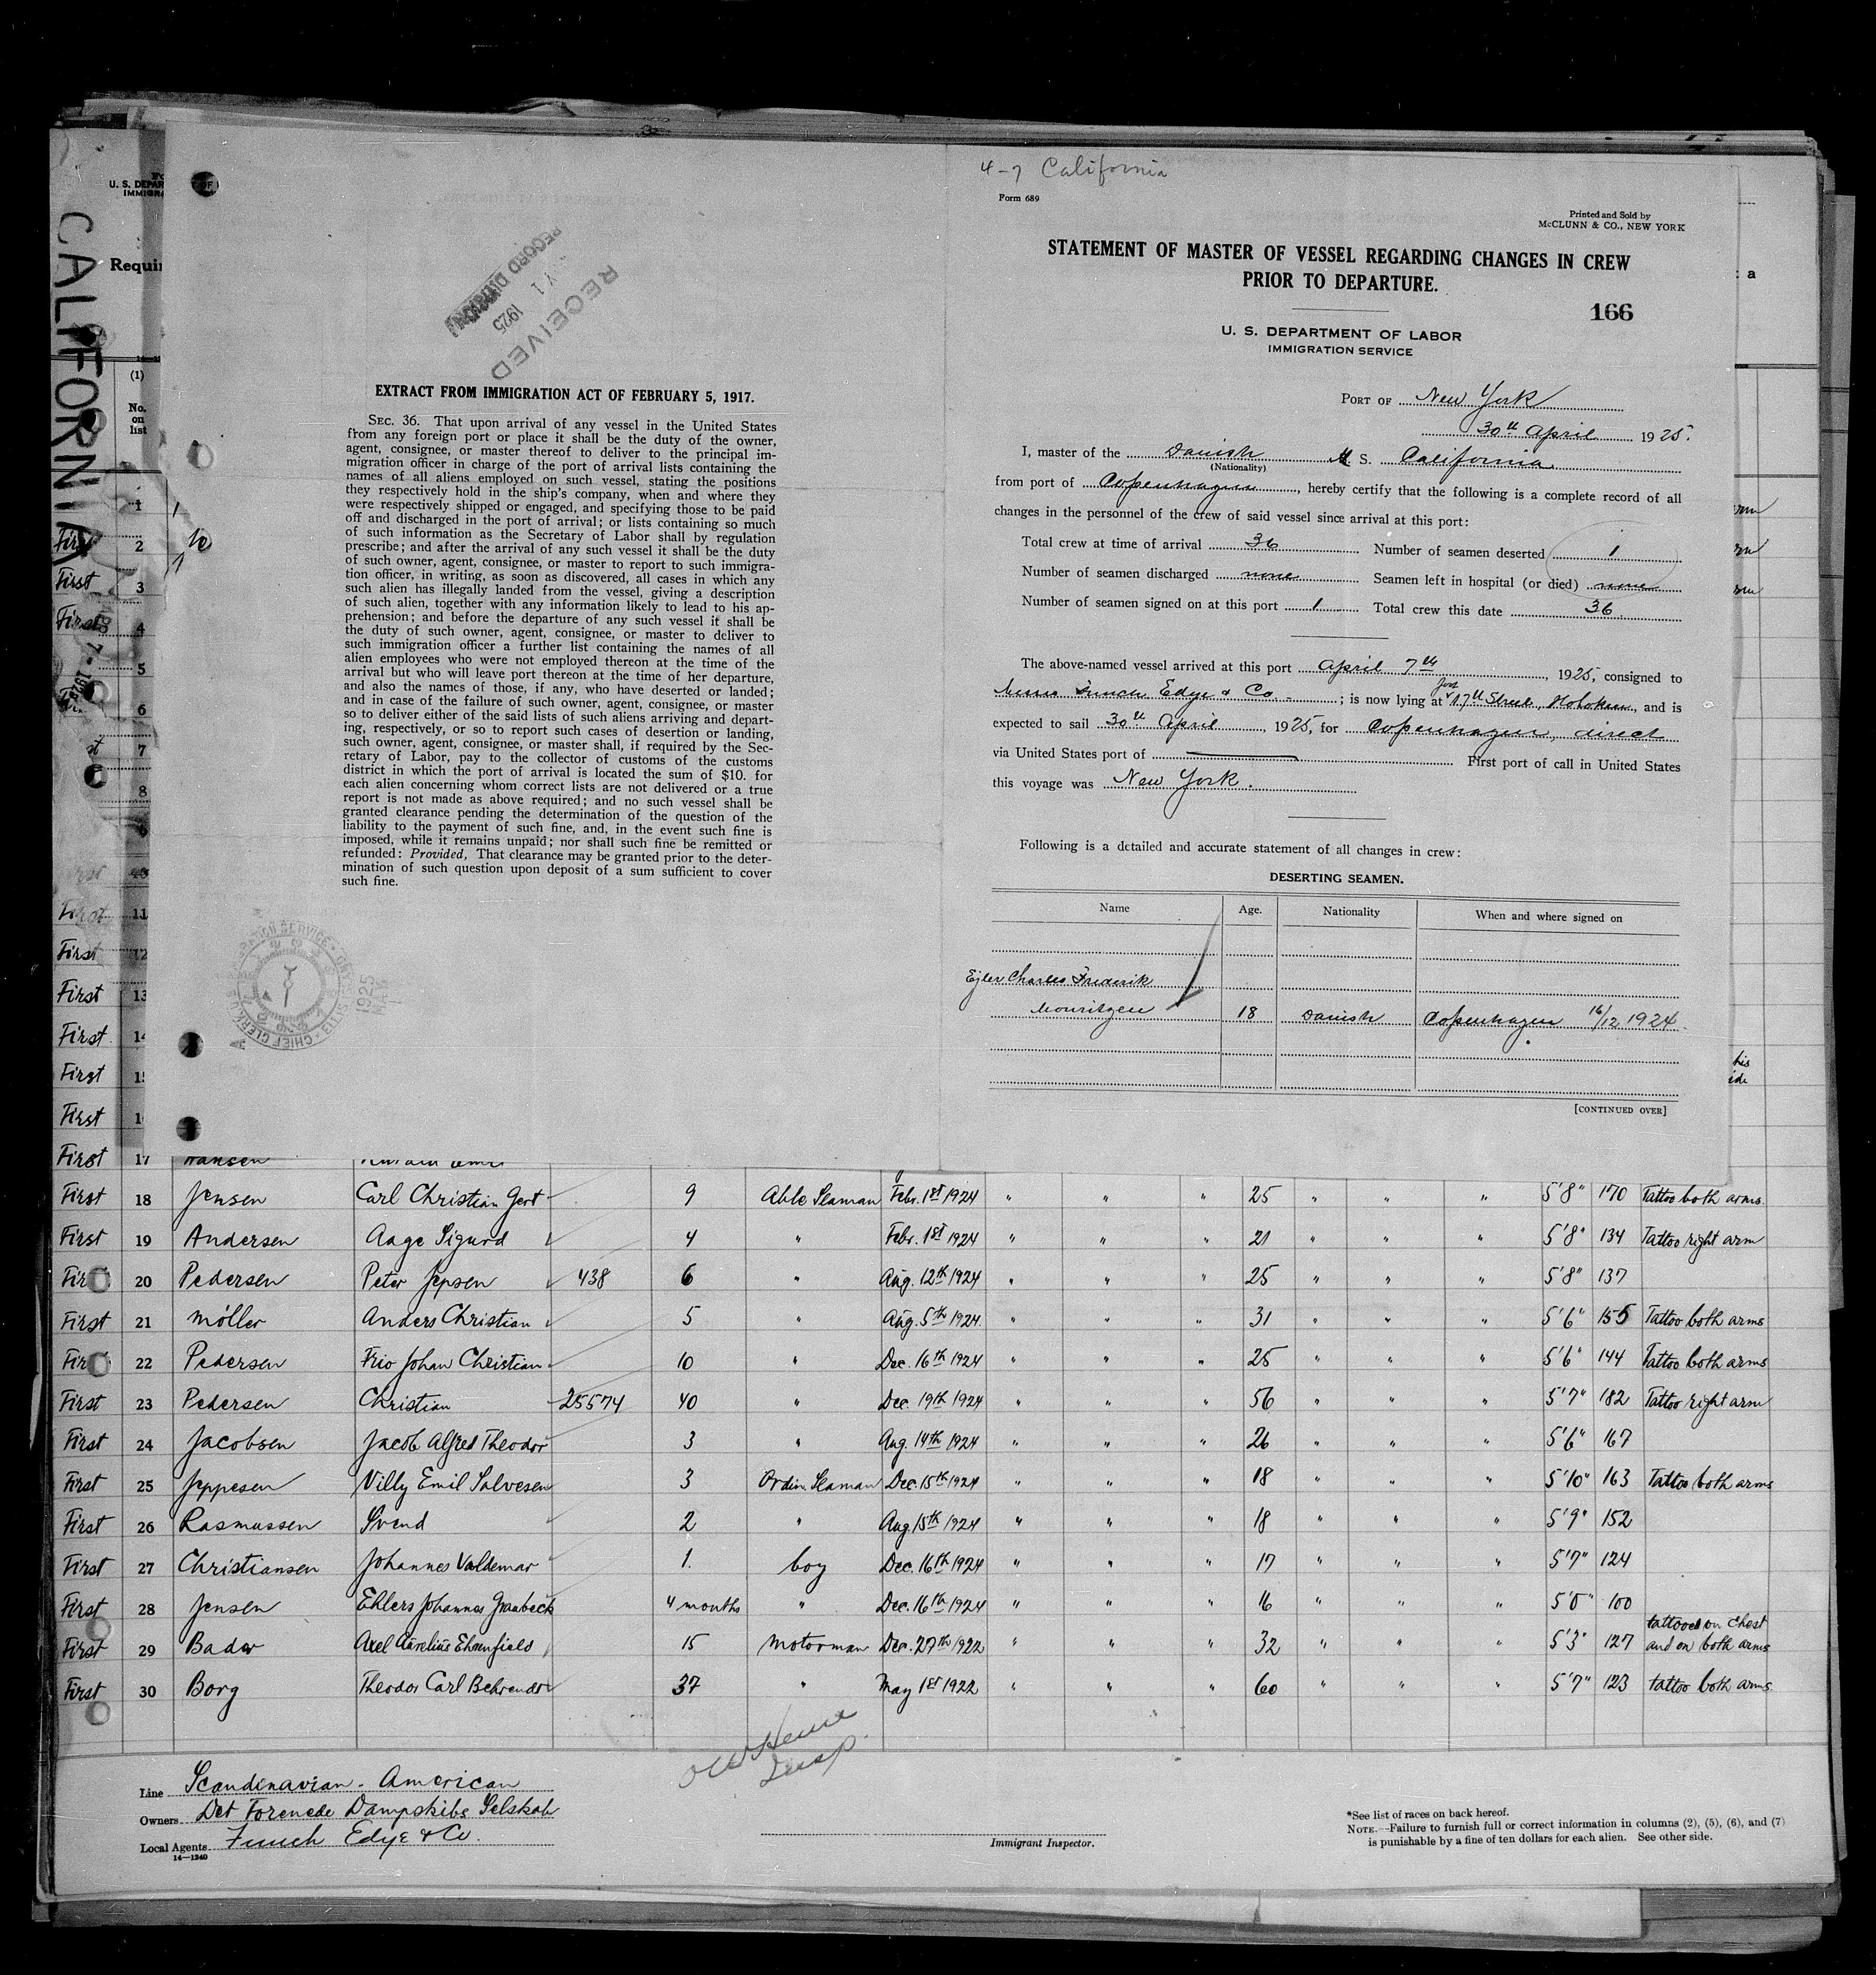 CALIFORNIA
U. S. DEPAR
IMMIGRA
Requi
(1)
No.
on
list
RECEIVED
1925
RECORD DIVISION
EXTRACT FROM IMMIGRATION ACT OF FEBRUARY 5, 1917.
SEC. 36. That upon arrival of any vessel in the United States
from any foreign port or place it shall be the duty of the owner,
agent, consignee, or master thereof to deliver to the principal im-
migration officer in charge of the port of arrival lists containing the
names of all aliens employed on such vessel, stating the positions
they respectively hold in the ship's company, when and where they
were respectively shipped or engaged, and specifying those to be paid
off and discharged in the port of arrival; or lists containing so much
of such information as the Secretary of Labor shall by regulation
prescribe; and after the arrival of any such vessel it shall be the duty
of such owner, agent, consignee, or master to report to such immigra-
tion officer, in writing, as soon as discovered, all cases in which any
such alien has illegally landed from the vessel, giving a description
of such alien, together with any information likely to lead to his ap-
prehension; and before the departure of any such vessel it shall be
the duty of such owner, agent, consignee, or master to deliver to
such immigration officer a further list containing the names of all
alien employees who were not employed thereon at the time of the
arrival but who will leave port thereon at the time of her departure,
and also the names of those, if any, who have deserted or landed;
and in case of the failure of such owner, agent, consignee, or master
so to deliver either of the said lists of such aliens arriving and depart-
ing, respectively, or so to report such cases of desertion or landing,
such owner, agent, consignee, or master shall, if required by the Sec-
retary of Labor, pay to the collector of customs of the customs
district in which the port of arrival is located the sum of $10. for
each alien concerning whom correct lists are not delivered or a true
report is not made as above required; and no such vessel shall be
granted clearance pending the determination of the question of the
liability to the payment of such fine, and, in the event such fine is
imposed, while it remains unpaid; nor shall such fine be remitted or
refunded: Provided, That clearance may be granted prior to the deter-
mination of such question upon deposit of a sum sufficient to cover
such fine.
4-7 California
Form 689
Printed and Sold by
McCLUNN & CO., NEW YORK
STATEMENT OF MASTER OF VESSEL REGARDING CHANGES IN CREW
PRIOR TO DEPARTURE.
166
U. S. DEPARTMENT OF LABOR
IMMIGRATION SERVICE
PORT OF New York
30th April 1925.
I, master of the Danish M. S. California
(Nationality)
from port of Copenhagen, hereby certify that the following is a complete record of all
changes in the personnel of the crew of said vessel since arrival at this port:
Total crew at time of arrival 36 Number of seamen deserted 1
Number of seamen discharged none Seamen left in hospital (or died) none
Number of seamen signed on at this port 1 Total crew this date 36
The above-named vessel arrived at this port April 7th, 1925, consigned to
Messrs Funch Edye & Co.; is now lying at foot 17th Street, Hoboken, and is
expected to sail 30th April, 1925, for Copenhagen, direct
via United States port of First port of call in United States
this voyage was New York.
Following is a detailed and accurate statement of all changes in crew:
DESERTING SEAMEN.
Name Age. Nationality When and where signed on
Ejler Charles Frederik
Mouritzen 18 Danish Copenhagen 16/12 1924.
[CONTINUED OVER]
1
First 2
First 3
First 4
5
6
7
8
First 11
First 12
First 13
First 14
First
First
First 17 Hansen
First 18 Jensen Carl Christian Gert 9 Able Seaman Febr. 1st 1924 " " " 25 " " " 5'8" 170 Tattoo both arms.
First 19 Andersen Aage Sigurd 4 " Febr. 1st 1924 " " " 21 " " " 5'8" 134 Tattoo right arm
First 20 Pedersen Peter Jepsen 438 6 " Aug. 12th 1924 " " " 25 " " " 5'8" 137
First 21 Möller Anders Christian 5 " Aug. 5th 1924. " " " 31 " " " 5'6" 155 Tattoo both arms
First 22 Pedersen Frio Johan Christian 10 " Dec. 16th 1924 " " " 25 " " " 5'6" 144 Tattoo both arms
First 23 Pedersen Christian 25574 40 " Dec. 19th 1924 " " " 56 " " " 5'7" 182 Tattoo right arm
First 24 Jacobsen Jacob Alfred Theodor 3 " Aug. 14th 1924 " " " 26 " " " 5'6" 167
First 25 Jeppesen Villy Emil Salvesen 3 Ordin. Seaman Dec. 15th 1924 " " " 18 " " " 5'10" 163 Tattoo both arms
First 26 Rasmussen Svend 2 " Aug. 15th 1924 " " " 18 " " " 5'9" 152
First 27 Christiansen Johannes Valdemar 1. boy Dec. 16th 1924 " " " 17 " " " 5'7" 124
First 28 Jensen Ehlers Johannes Graubæck 4 months " Dec. 16th 1924 " " " 16 " " " 5'0" 100
First 29 Bader Axel Aurelius Ehrenfields 15 Motorman Dec. 27th 1922 " " " 32 " " " 5'3" 127 tattooed on chest and on both arms
First 30 Borg Theodor Carl Behrendt 37 " May 1st 1922 " " " 60 " " " 5'7" 123 tattoo both arms
Line Scandinavian-American
Owners Det Forenede Dampskibs Selskab
Local Agents Funch Edye & Co.
14-1240
Immigrant Inspector.
*See list of races on back hereof.
NOTE.—Failure to furnish full or correct information in columns (2), (5), (6), and (7)
is punishable by a fine of ten dollars for each alien. See other side.